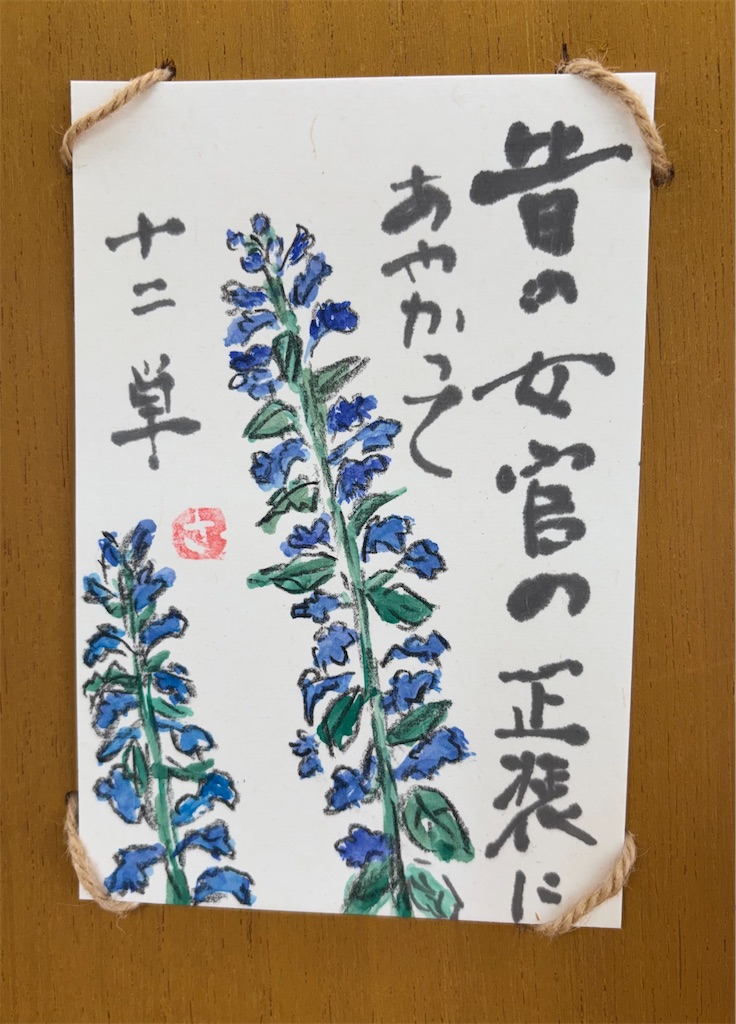 昔の女官の正装に
あやかって
十二単
さ